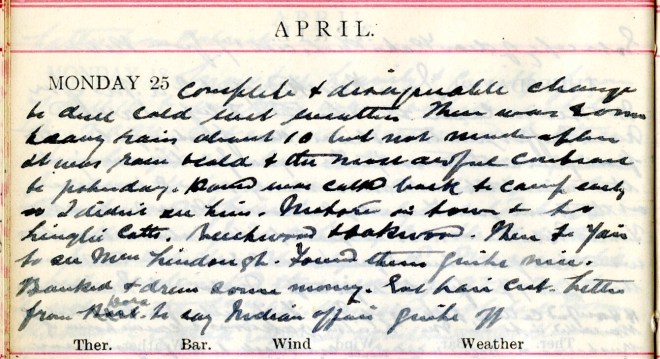 APRIL.
MONDAY 25 Complete & disagreeable change
to dull cold wet weather. There was some
heavy rain about 10 but not much after
It was raw & cold & the most awful contrast
to yesterday. was called back to camp early
so I didn't see him. Motored in town & to
Beechwood & Oakwood. Then to Yair
to see Mrs. Found them quite nice.
Banked & drew some money. Got hair cut. Letter
from to say Indian affair quite off
Ther. Bar. Wind Weather